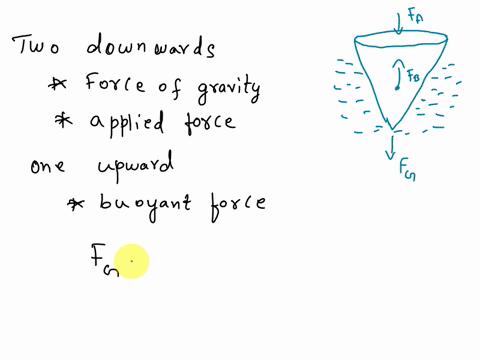 Two downwards
* Force of gravity
* applied force
one upward
* buoyant force
F_G
F_A
F_B
F_G